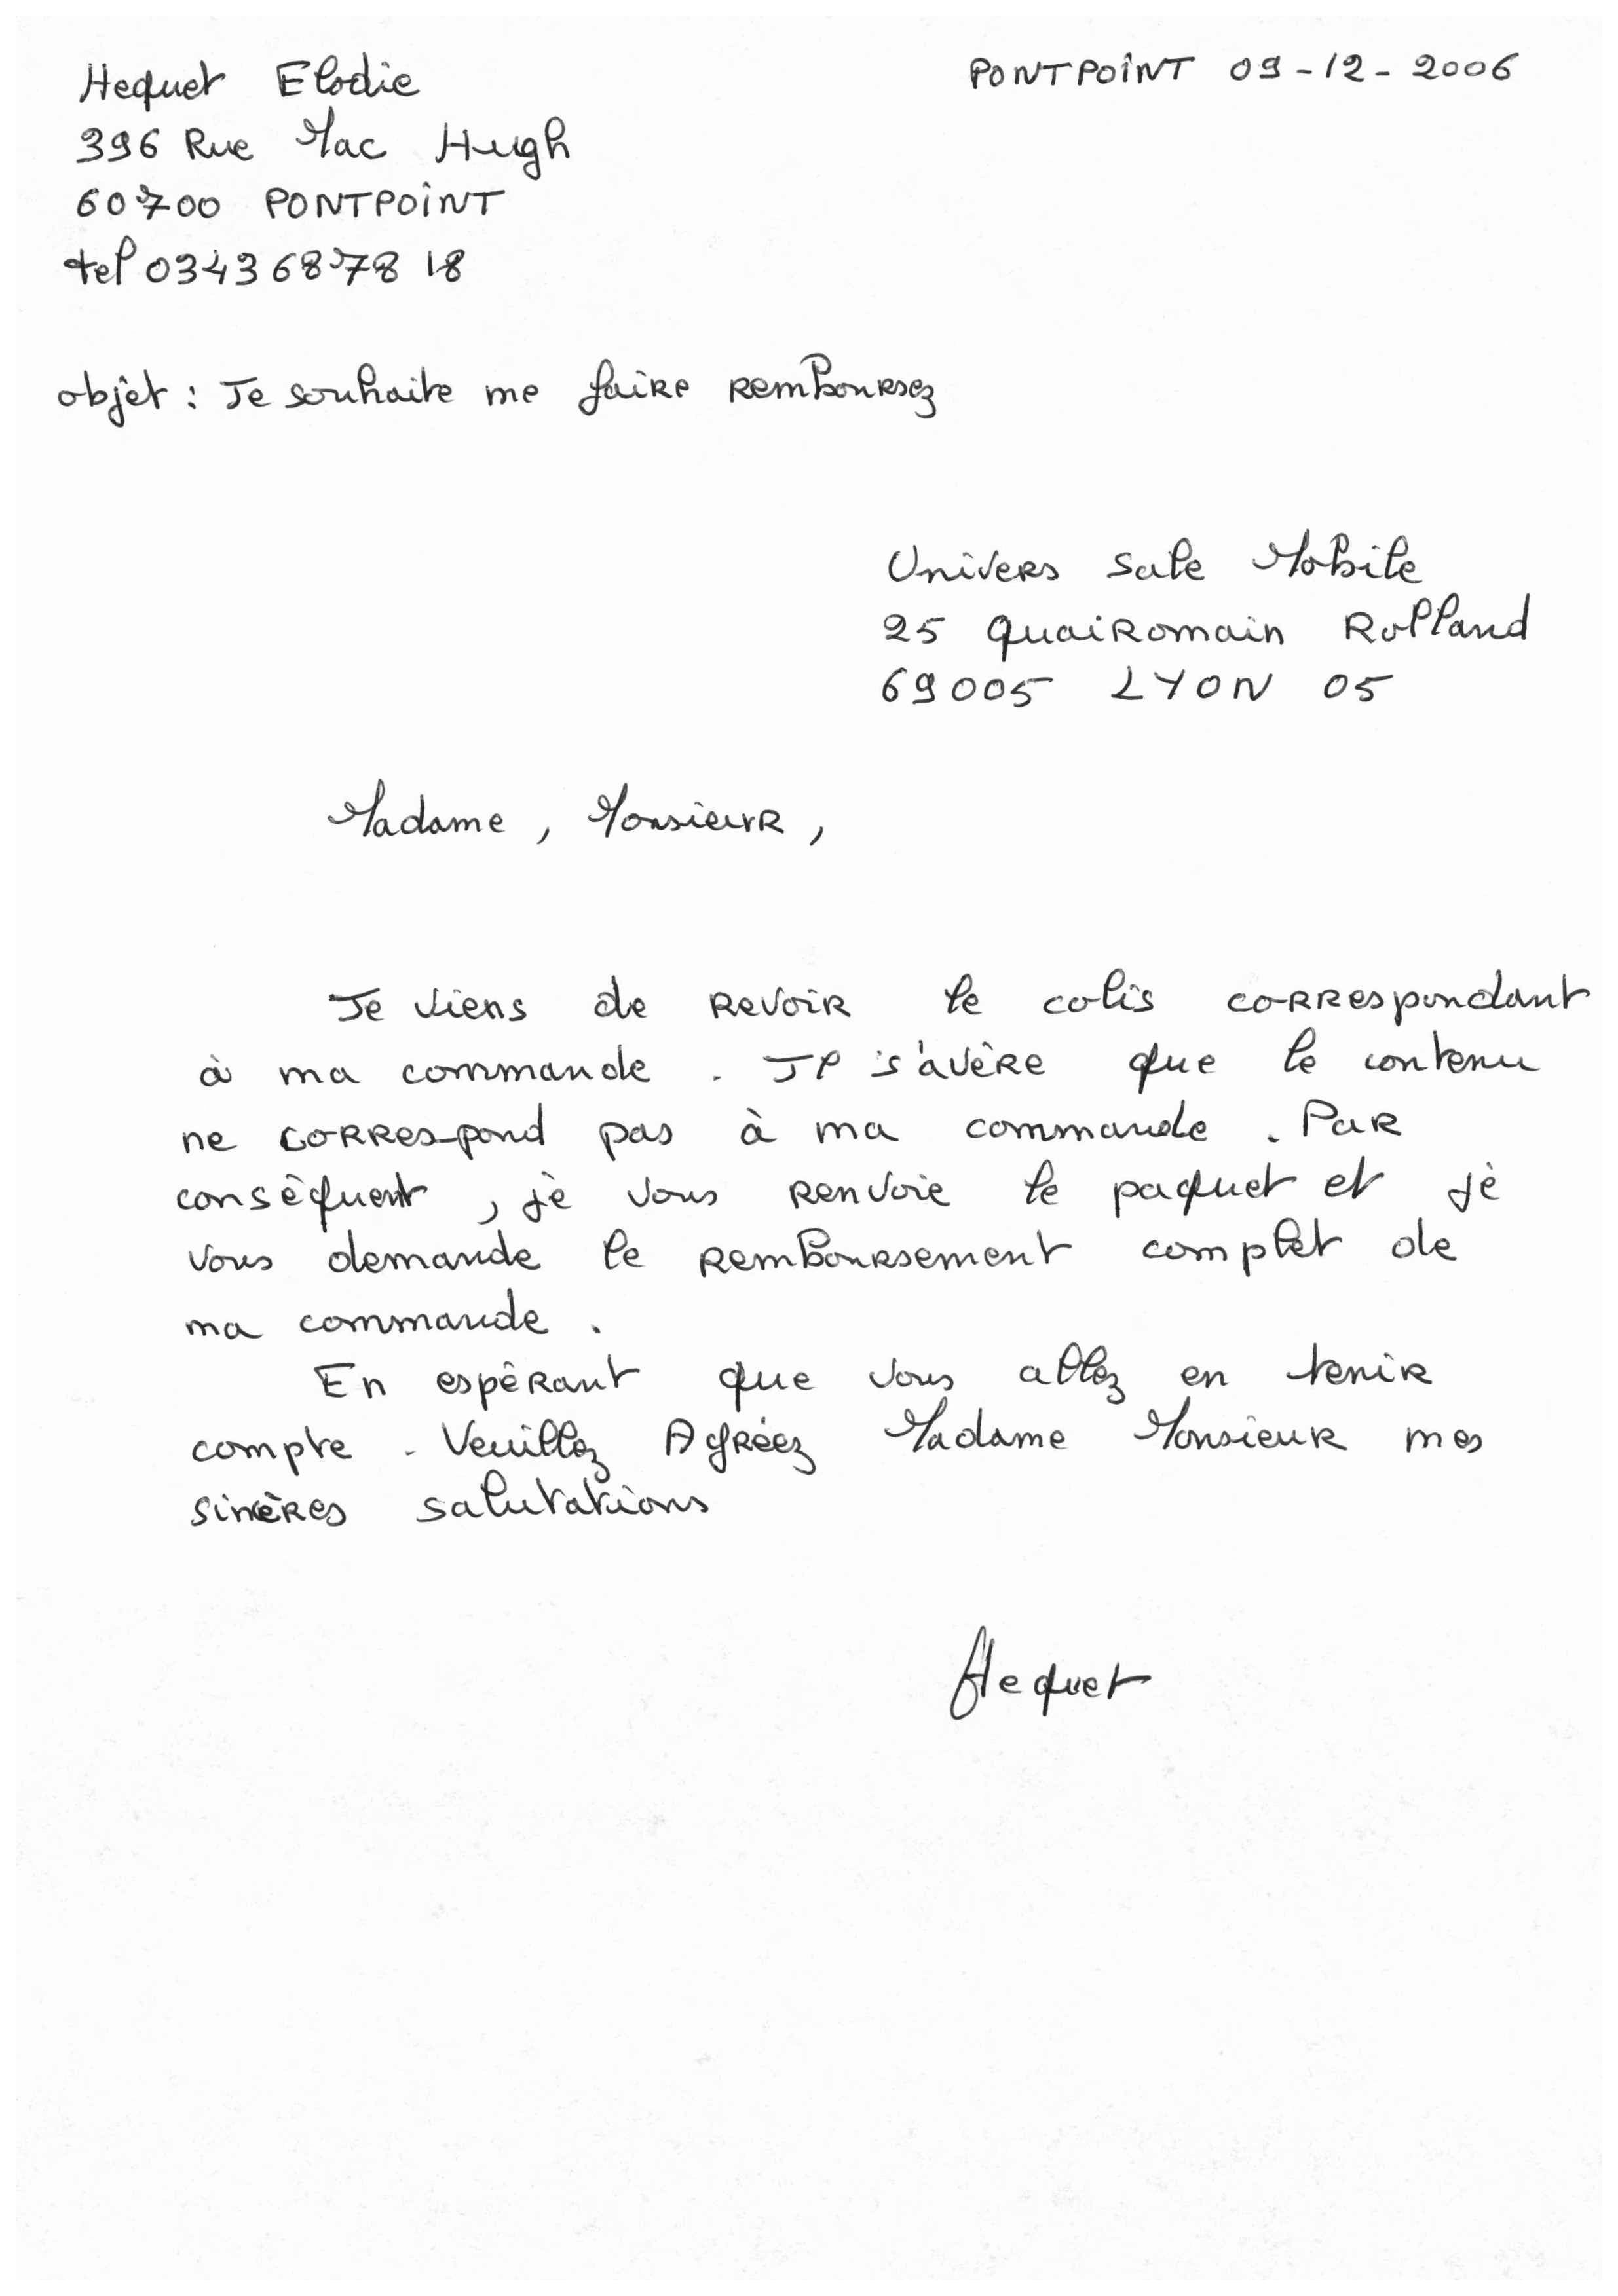 Hequet Elodie
PONTPOiNT 09-12-2006
396 Rue Mac Hugh
60700 PONTPOiNT
tel 03436878 18
objèt : Je souhaite me faire Remboursez
Univers Sale Mobile
25 quai Romain Rolland
69005 LYON 05
Madame, Monsieur,
Je viens de Revoir le colis correspondant
à ma commande . Il s'avère que le contenu
ne correspond pas à ma commande . Par
consèquent, jè vous renvoie le paquet et jè
vous demande le remboursement complet de
ma commande .
En espèrant que vous allez en tenir
compte . Veuillez Agréez Madame Monsieur mes
sincères salutations
Hequet